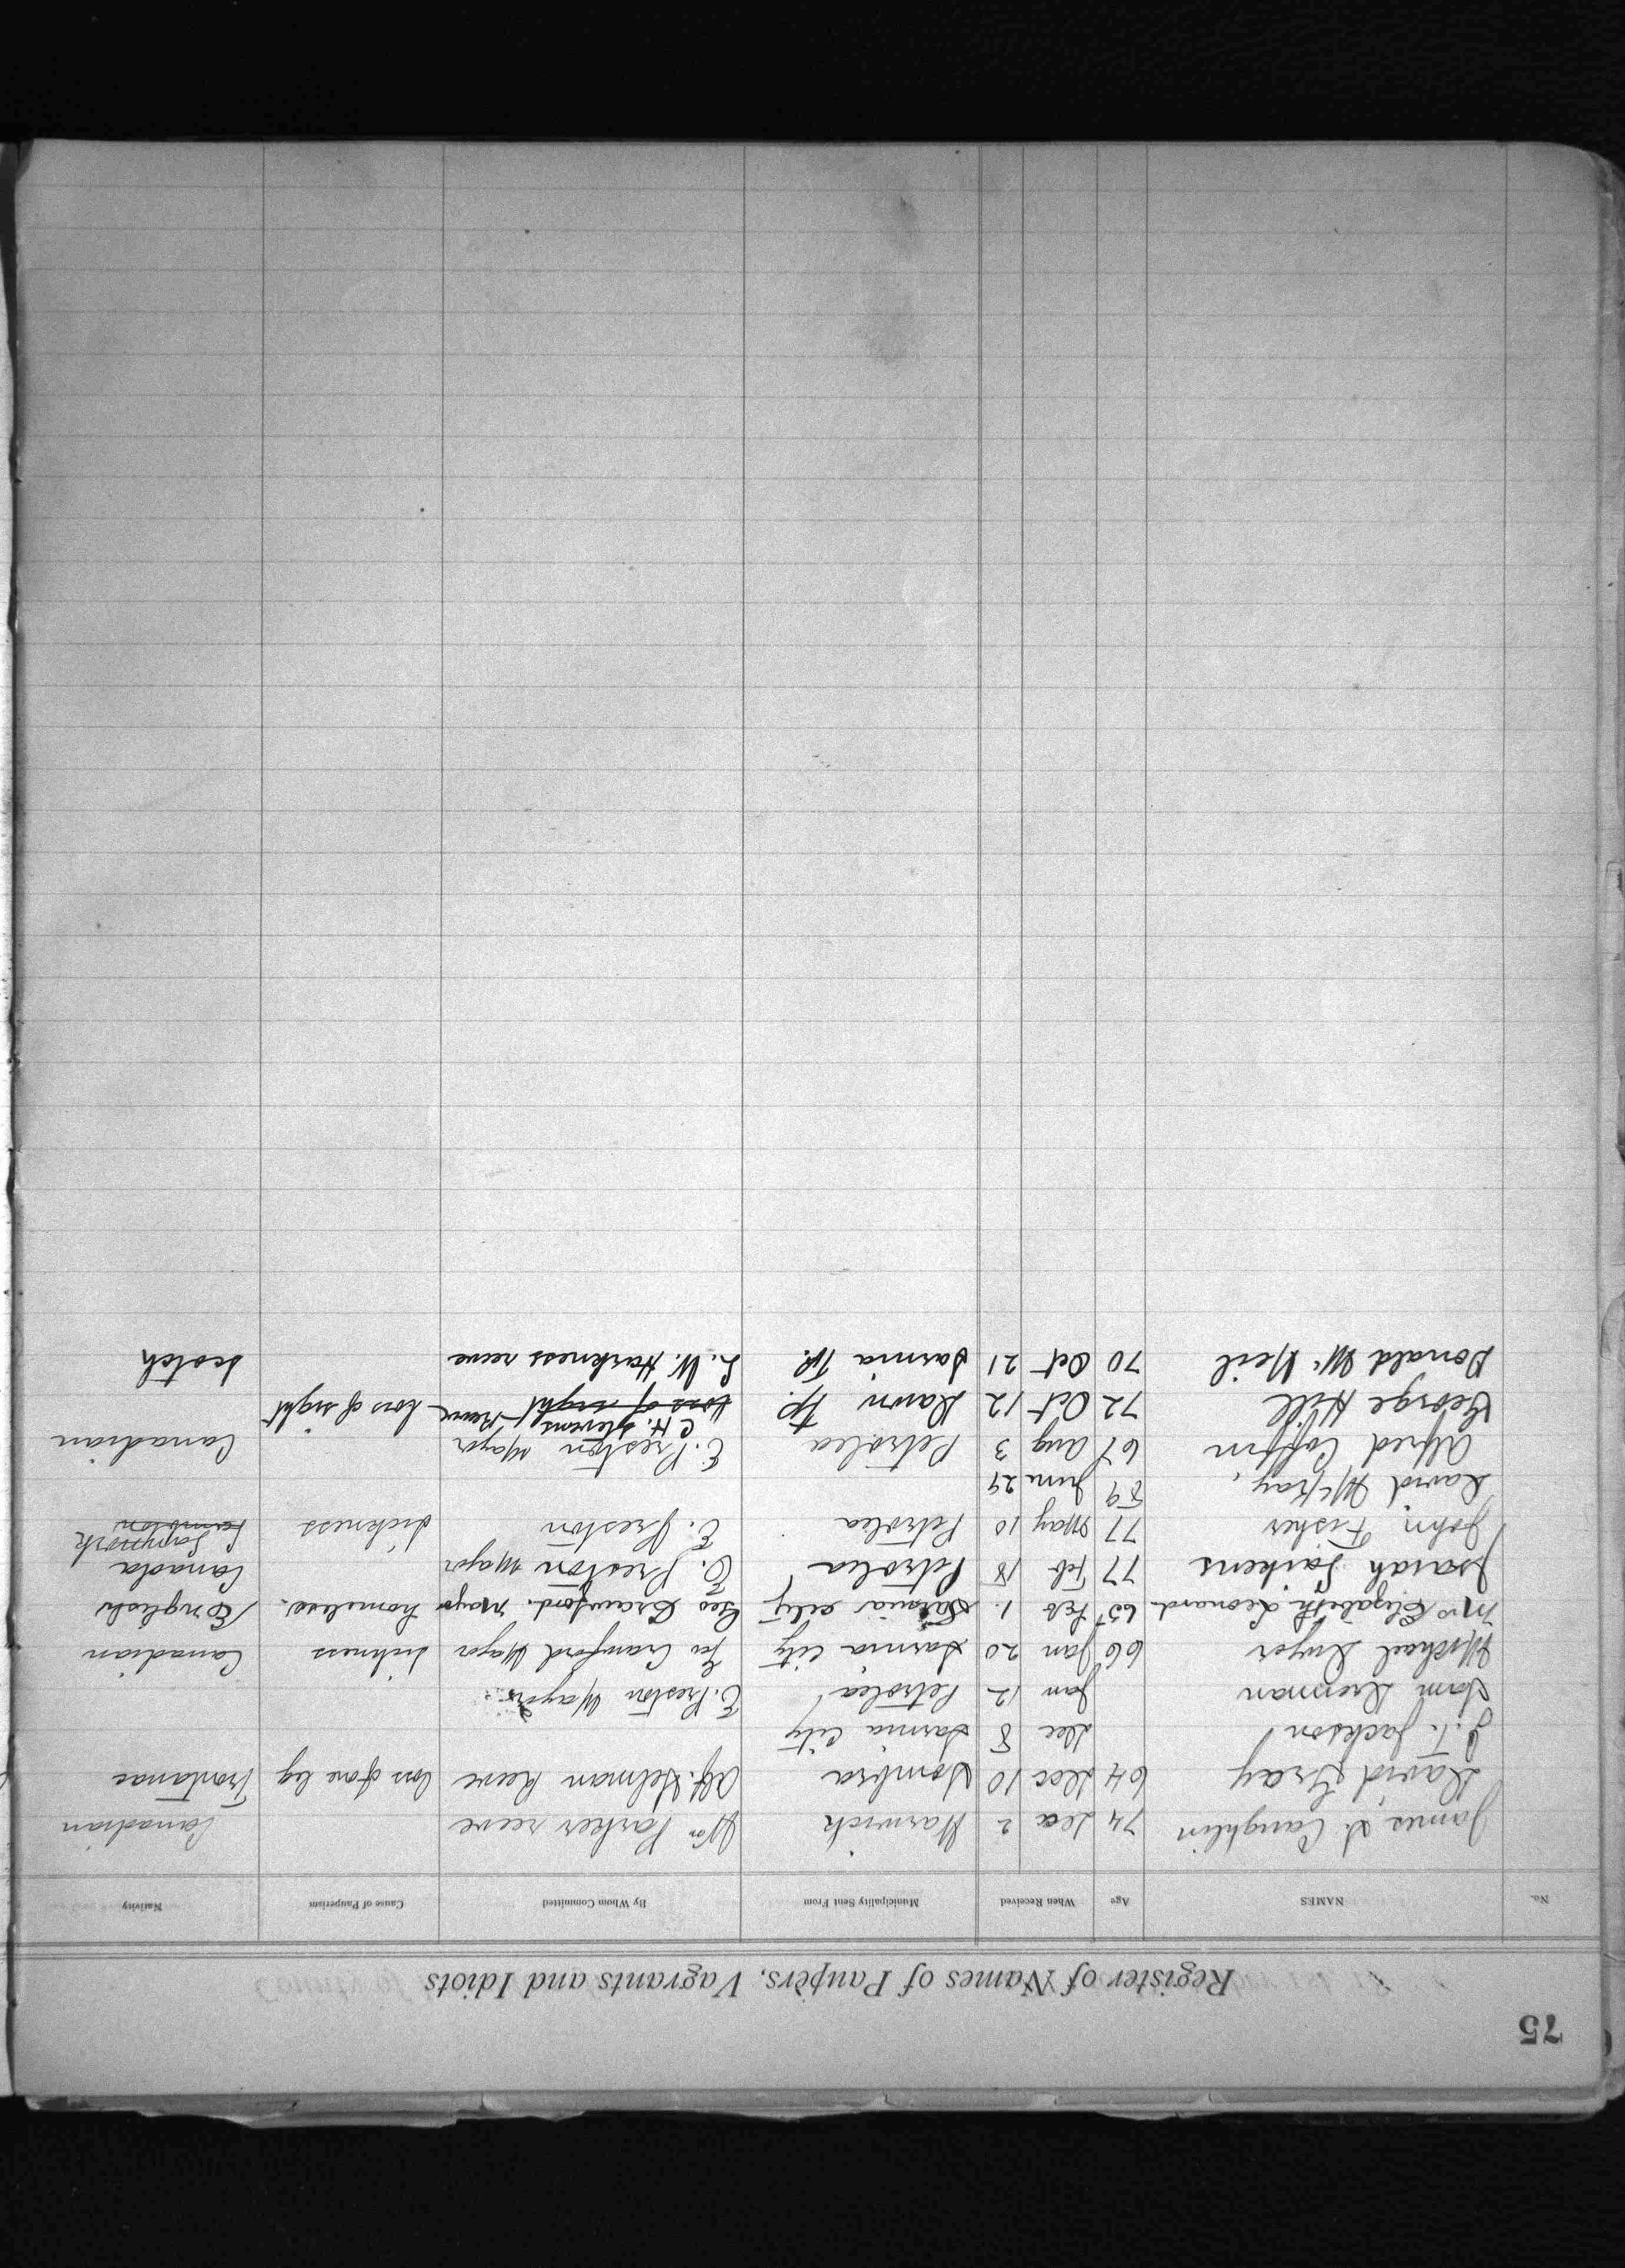 75
Register of Names of Paupers, Vagrants and Idiots
No. NAMES Age When Received Municipality Sent From By Whom Committed Cause of Pauperism Nativity
James D. Caughlin 74 Dec 2 Warwick Wm Parker reeve Canadian
David Gray 64 Dec 10 Sombra Alf. Holman Reeve loss of one leg Frontanac
J. T. Jackson Dec 8 Sarnia City
Sam Drennan Jan 12 Petrolea E. Preston Mayor
Michael Dwyer 66 Jan 20 Sarnia City Geo Crawford Mayor Sickness Canadian
Mrs Elizabeth Leonard 65 Feb 1. Sarnia city Geo Crawford. Mayor homeless. English
Isaiah 77 Feb 18 Petrolea E. Preston Mayor Canada
John Fisher 77 May 10 Petrolea E. Preston Sickness Lambton
David McKay, 89 June 29
Alfred Coffin 67 Aug 3 Petrolea E. Preston Mayor Canadian
George Hill 72 Oct 12 Dawn Tp. loss of sight C H. Stevens Reeve loss of sight
Donald Mc Neil 70 Oct 21 Sarnia Tp. L. W. Harkness reeve Scotch